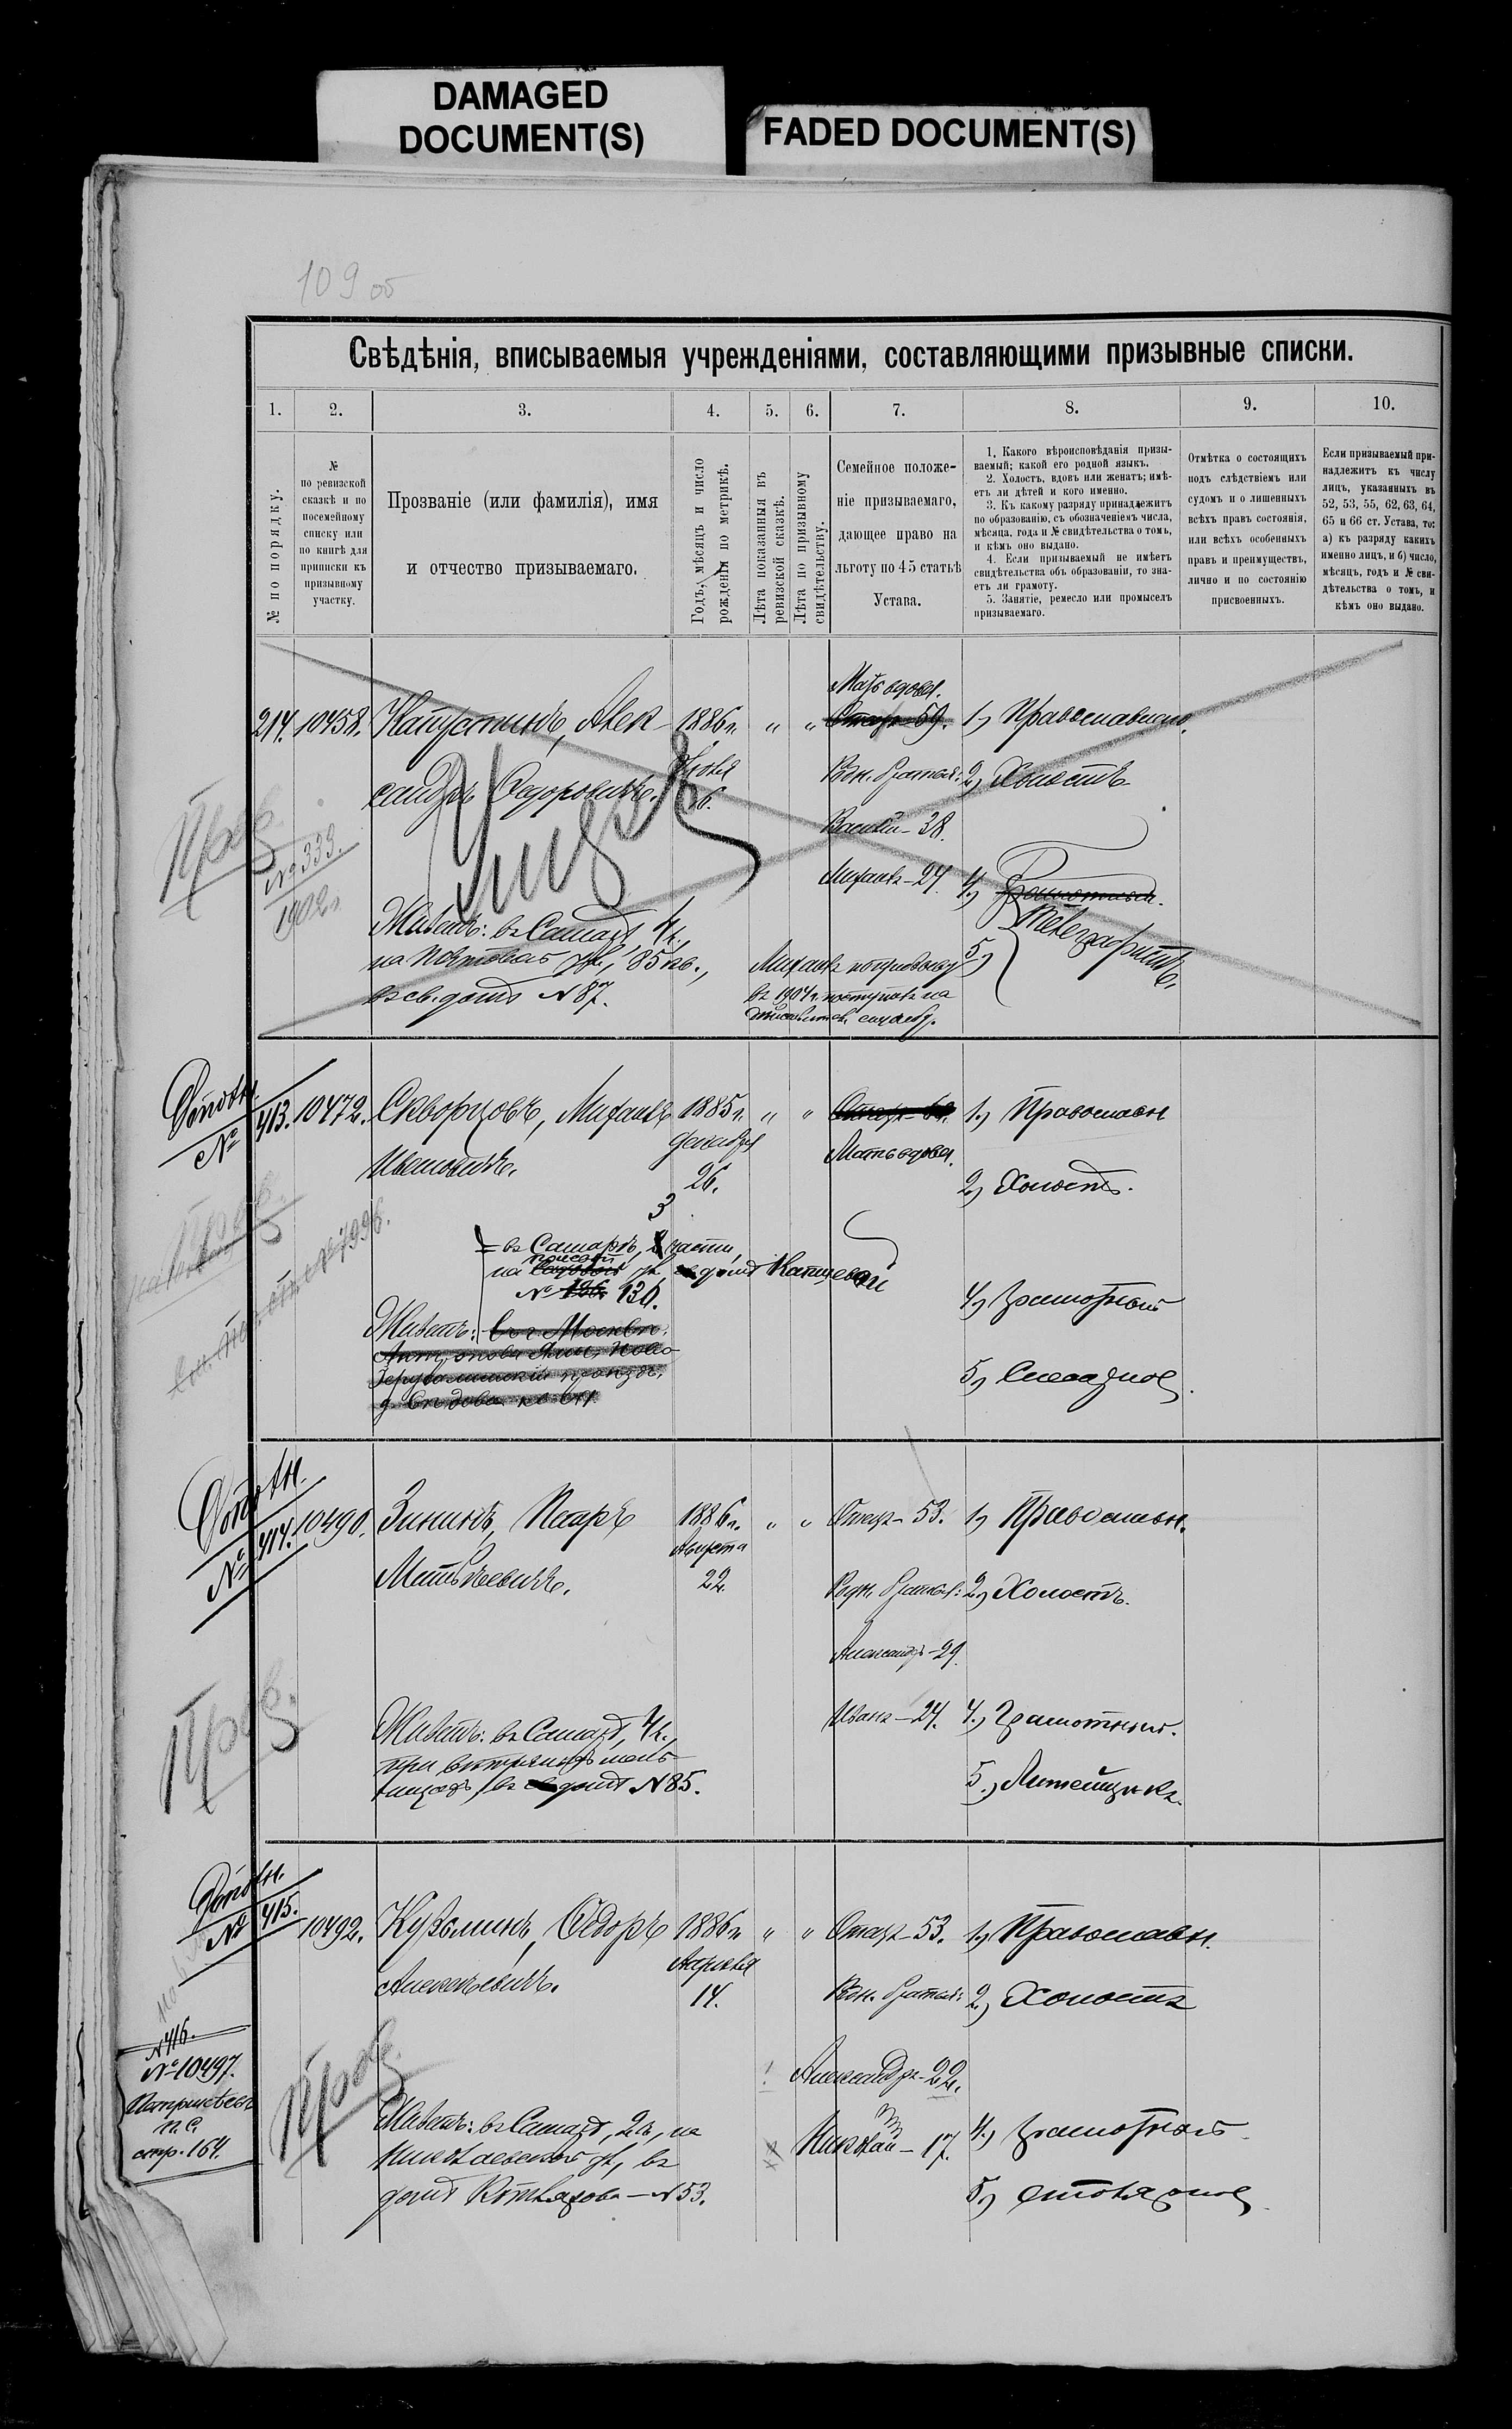 DAMAGED
DOCUMENT(S)
FADED DOCUMENT(S)
109 об
Свѣдѣнія, вписываемыя учрежденіями, составляющими призывные списки.
1. 2. 3. 4. 5. 6. 7. 8. 9. 10.
№ по порядку.
№
по ревизской
сказкѣ и по
посемейному
списку или
по книгѣ для
приписки къ
призывному
участку.
Прозваніе (или фамилія), имя
и отчество призываемаго.
Годъ, мѣсяцъ и число
рожденія по метрикѣ.
Лѣта показанныя въ
ревизской сказкѣ.
Лѣта по призывному
свидѣтельству.
Семейное положе-
ніе призываемаго,
дающее право на
льготу по 45 статьѣ
Устава.
1. Какого вѣроисповѣданія призы-
ваемый; какой его родной языкъ.
2. Холостъ, вдовъ или женатъ; имѣ-
етъ ли дѣтей и кого именно.
3. Къ какому разряду принадлежитъ
по образованію, съ обозначеніемъ числа,
мѣсяца, года и № свидѣтельства о томъ,
и кѣмъ оно выдано.
4. Если призываемый не имѣетъ
свидѣтельства объ образованіи, то зна-
етъ ли грамоту.
5. Занятіе, ремесло или промыселъ
призываемаго.
Отмѣтка о состоящихъ
подъ слѣдствіемъ или
судомъ и о лишенныхъ
всѣхъ правъ состоянія,
или всѣхъ особенныхъ
правъ и преимуществъ,
лично и по состоянію
присвоенныхъ.
Если призываемый при-
надлежитъ къ числу
лицъ, указанныхъ въ
52, 53, 55, 62, 63, 64,
65 и 66 ст. Устава, то:
а) къ разряду какихъ
именно лицъ, и б) число,
мѣсяцъ, годъ и № сви-
дѣтельства о томъ, и
кѣмъ оно выдано.
214. 10458. Капустинъ, Алек-
сандръ Ѳедоровичъ.
1886 г.
Іюля
6.
" "
Мать вдова.
Отецъ - 59.
Родн. братья:
Василій - 38.
Михаилъ - 24.
1, Православный.
2, Холостъ
4, Грамотный.
5, Телеграфистъ.
Пров.
№ 333.
1902 г.
Живетъ: въ Самарѣ 4 ч.,
на Почтовой ул., 85 кв.,
въ св. домѣ № 87.
Михаилъ по призыву
въ 1904 г. поступилъ на
дѣйствит. службу.
Дополн.
№ 413. 10472. Скворцовъ, Михаилъ
Ивановичъ.
1885 г.
Декабря
26.
" "
Мать вдова.
1, Православн
2, Холостъ.
4, Грамотный
5, Слесарное.
3
въ Самарѣ, части,
на ул. д. Катцевой
№ 136. 130.
Живетъ: въ г. Москвѣ.
Дополн.
№ 414. 10490. Зининъ, Петръ
Матвѣевичъ.
1886 г.
Августа
22.
" "
Отецъ - 53.
Родн. братья:
Александръ - 29.
Иванъ - 24.
1, Православн.
2, Холостъ.
4, Грамотный.
5, Литейщикъ.
Пров.
Живетъ: въ Самарѣ, 4 ч.,
при вѣтряныхъ мель-
ницахъ, въ домѣ № 85.
Дополн.
№ 415.
10492. Кузьминъ, Ѳедоръ
Алексѣевичъ.
1886 г.
Апрѣля
14.
" "
Отецъ - 53.
Родн. братья:
Александръ - 22.
Николай - 17.
1, Православн.
2, Холостъ
4, Грамотный
5, Столярное.
№ 416.
№ 10497.
П. С.
стр. 164.
Пров.
Живетъ: въ Самарѣ, 2 ч., на
Николаевской ул., въ
домѣ Котлярова - № 53.